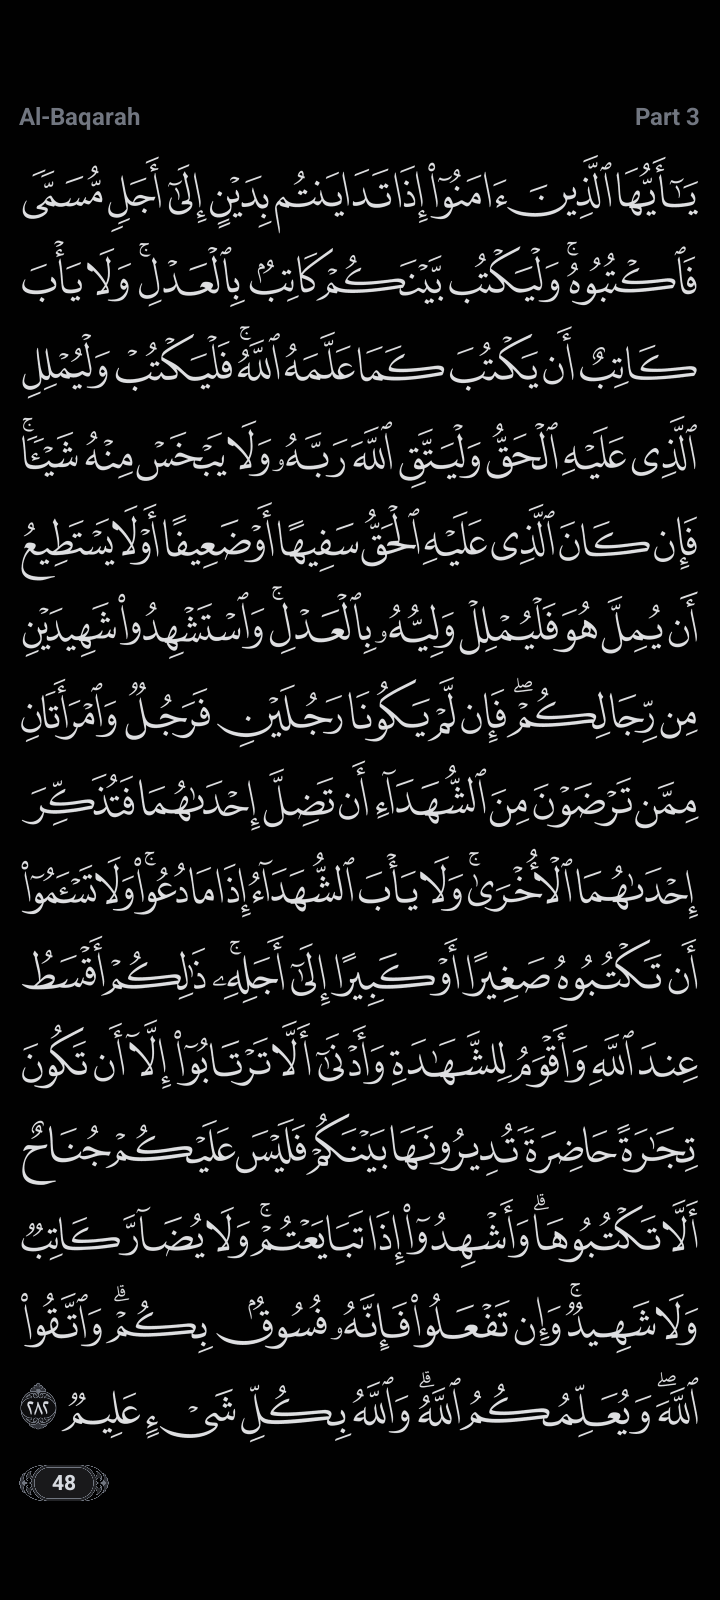 Al-Baqarah Part 3
يَـٰٓأَيُّهَا ٱلَّذِينَ ءَامَنُوٓا۟ إِذَا تَدَايَنتُم بِدَيْنٍ إِلَىٰٓ أَجَلٍ مُّسَمًّى
فَٱكْتُبُوهُ ۚ وَلْيَكْتُب بَّيْنَكُمْ كَاتِبٌۢ بِٱلْعَدْلِ ۚ وَلَا يَأْبَ
كَاتِبٌ أَن يَكْتُبَ كَمَا عَلَّمَهُ ٱللَّهُ ۚ فَلْيَكْتُبْ وَلْيُمْلِلِ
ٱلَّذِى عَلَيْهِ ٱلْحَقُّ وَلْيَتَّقِ ٱللَّهَ رَبَّهُۥ وَلَا يَبْخَسْ مِنْهُ شَيْـًٔا ۚ
فَإِن كَانَ ٱلَّذِى عَلَيْهِ ٱلْحَقُّ سَفِيهًا أَوْ ضَعِيفًا أَوْ لَا يَسْتَطِيعُ
أَن يُمِلَّ هُوَ فَلْيُمْلِلْ وَلِيُّهُۥ بِٱلْعَدْلِ ۚ وَٱسْتَشْهِدُوا۟ شَهِيدَيْنِ
مِن رِّجَالِكُمْ ۖ فَإِن لَّمْ يَكُونَا رَجُلَيْنِ فَرَجُلٌ وَٱمْرَأَتَانِ
مِمَّن تَرْضَوْنَ مِنَ ٱلشُّهَدَآءِ أَن تَضِلَّ إِحْدَىٰهُمَا فَتُذَكِّرَ
إِحْدَىٰهُمَا ٱلْأُخْرَىٰ ۚ وَلَا يَأْبَ ٱلشُّهَدَآءُ إِذَا مَا دُعُوا۟ ۚ وَلَا تَسْـَٔمُوٓا۟
أَن تَكْتُبُوهُ صَغِيرًا أَوْ كَبِيرًا إِلَىٰٓ أَجَلِهِۦ ۚ ذَٰلِكُمْ أَقْسَطُ
عِندَ ٱللَّهِ وَأَقْوَمُ لِلشَّهَـٰدَةِ وَأَدْنَىٰٓ أَلَّا تَرْتَابُوٓا۟ إِلَّآ أَن تَكُونَ
تِجَـٰرَةً حَاضِرَةً تُدِيرُونَهَا بَيْنَكُمْ فَلَيْسَ عَلَيْكُمْ جُنَاحٌ
أَلَّا تَكْتُبُوهَا ۗ وَأَشْهِدُوٓا۟ إِذَا تَبَايَعْتُمْ ۚ وَلَا يُضَآرَّ كَاتِبٌ
وَلَا شَهِيدٌ ۚ وَإِن تَفْعَلُوا۟ فَإِنَّهُۥ فُسُوقٌۢ بِكُمْ ۗ وَٱتَّقُوا۟
ٱللَّهَ ۖ وَيُعَلِّمُكُمُ ٱللَّهُ ۗ وَٱللَّهُ بِكُلِّ شَىْءٍ عَلِيمٌ ٢٨٢
48